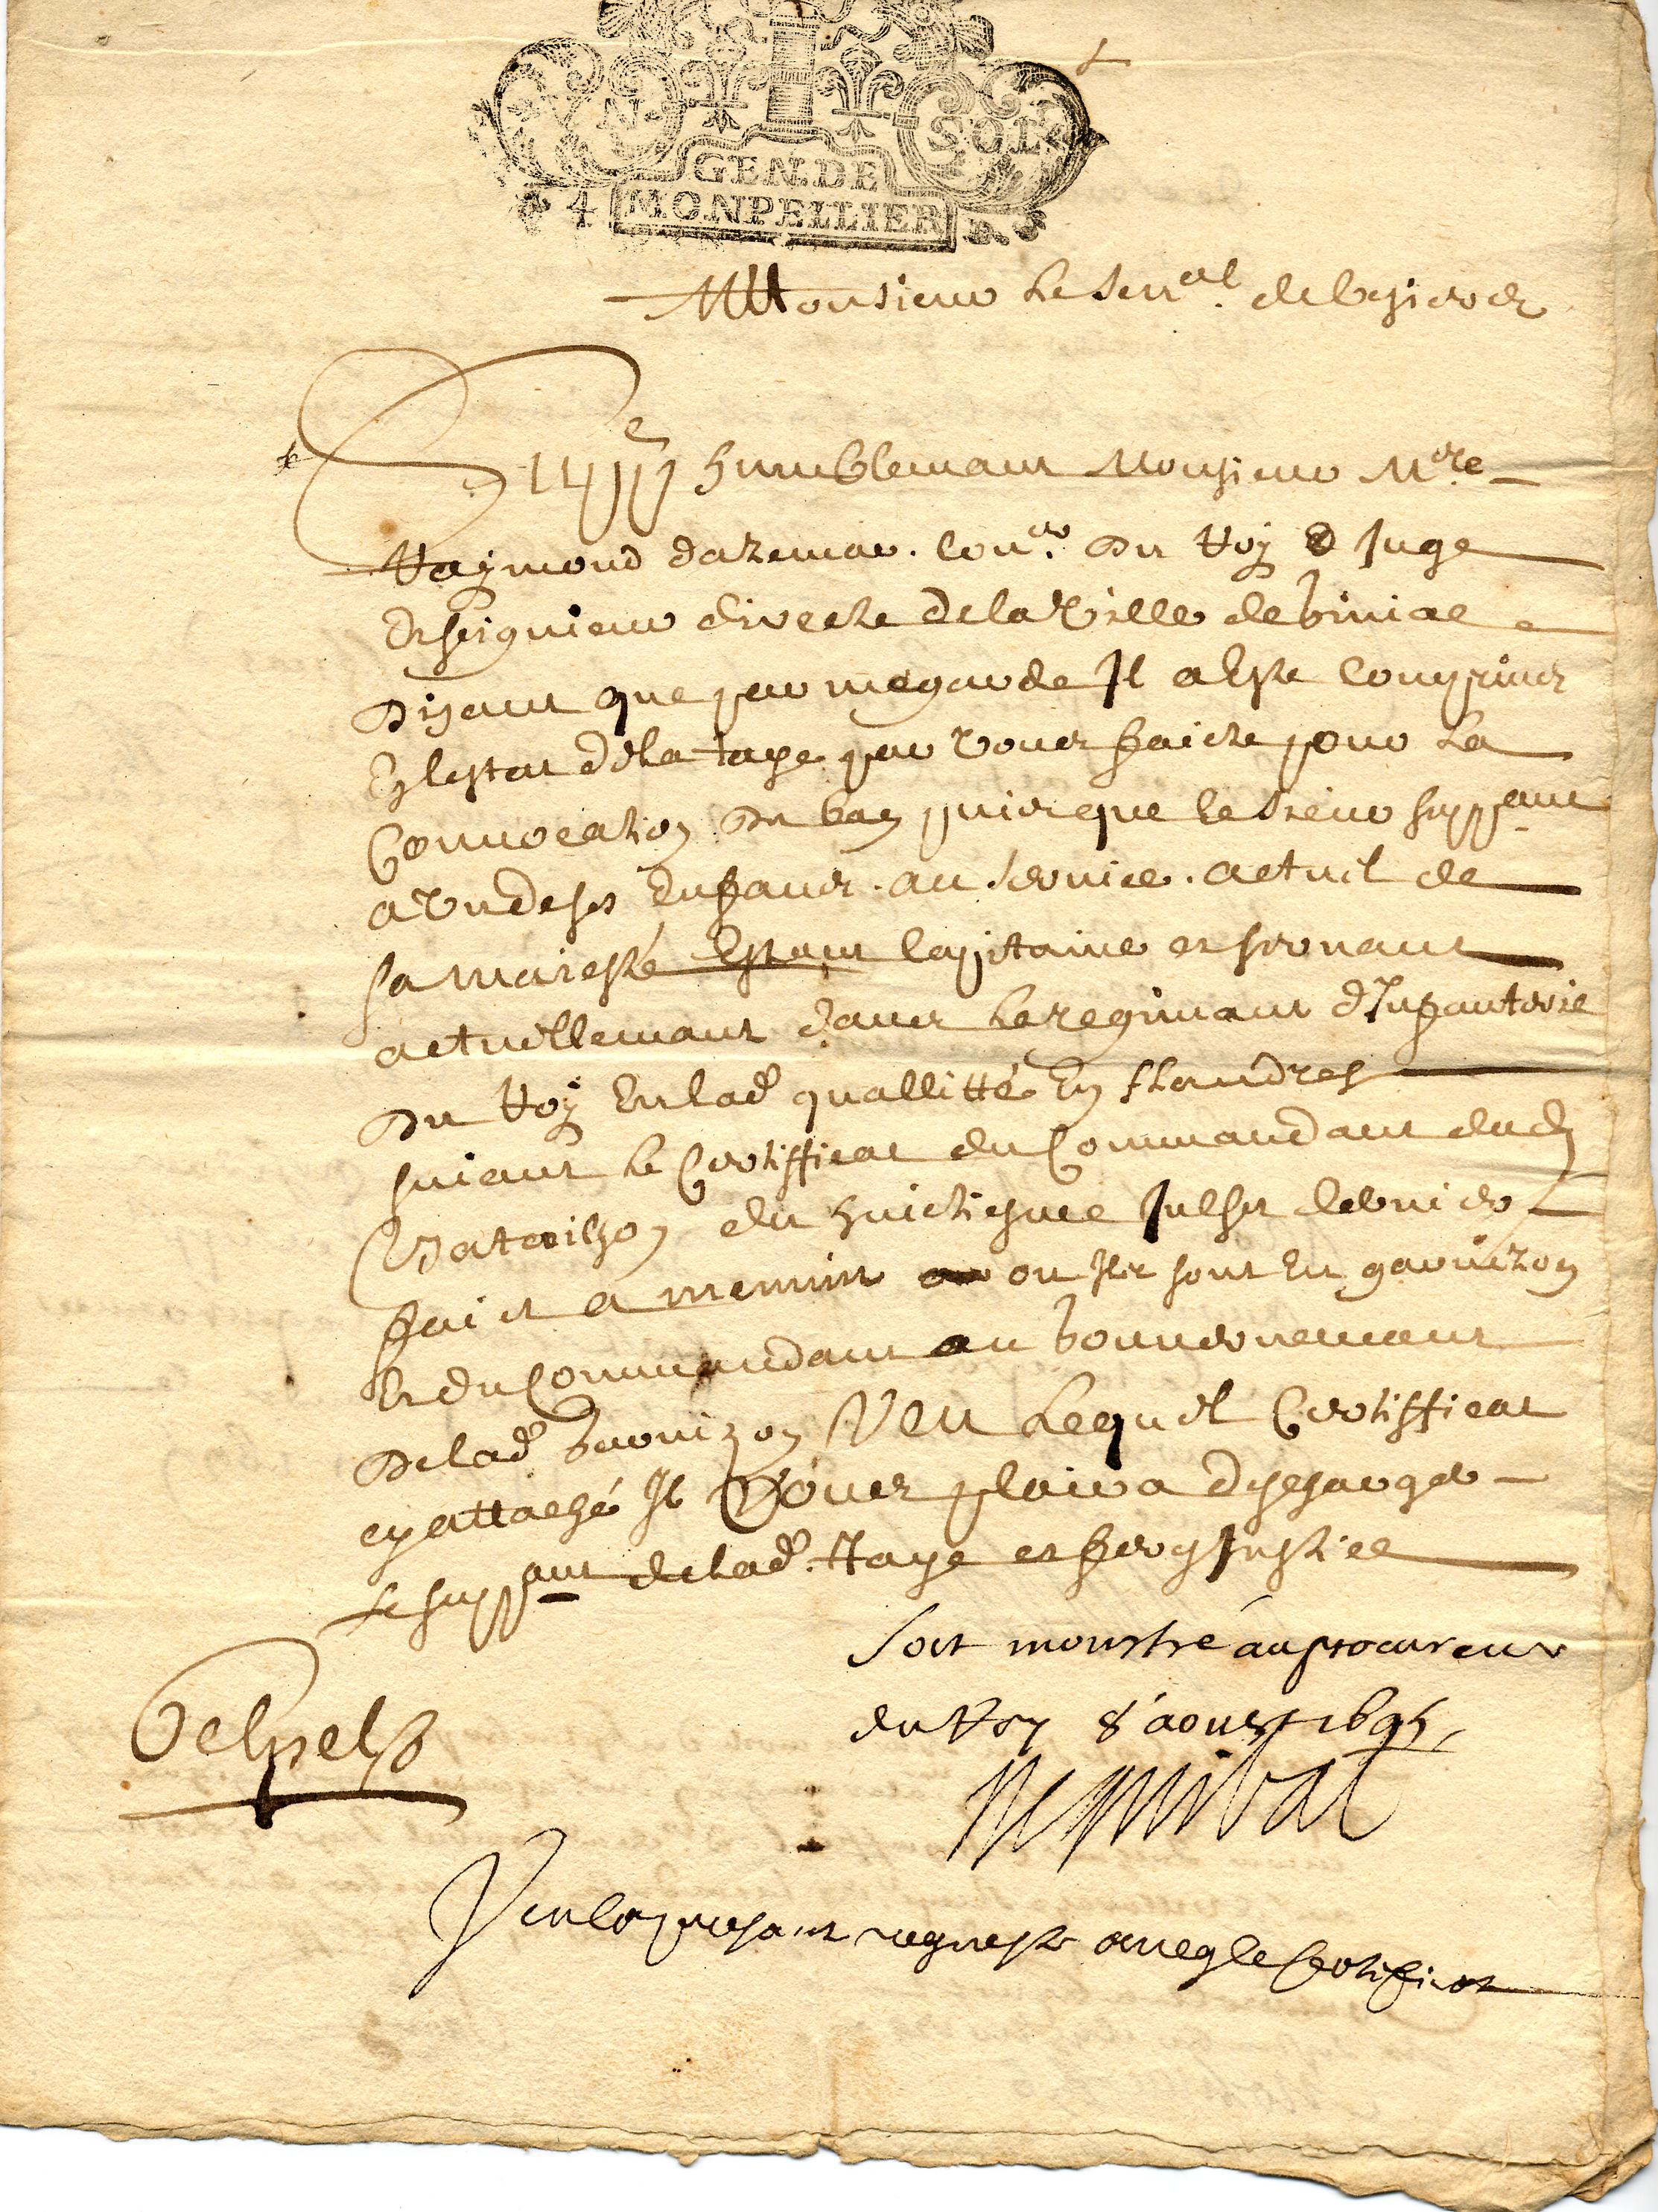 N SOLZ
GEN. DE
4 MONPELLIER D.
Monsieur Le Sen.al de besiers
Supp.e humblemant Monsieur M.re
Raymond dazemar. Con.er Du Roy & Juge
Et seigneur directe de la Ville de
Dizant que par megarde Il a Este comprins
En lestat de la taxe par vous faicte pour La
Convocation Du ban puis que le sieur supp.ant
a Un de ses Enfans. au service. actuel de
sa maiesté Estant Capitaine et servant
actuellemant dans le regimant d'Infanterie
Du Roy En lad. quallitté En flandres
suivant le Certifficat du Commandant dud.
Batailhon du huictiesme Julhet dernier
faict a menin ou Ils sont En garnizon
Et du Commandant au gouvernemant
De lad. garnizon Veu Lequel Certifficat
cy attaché Il Vous plaira descharger
Le supp.ant de lad. Taxe et ferés Justice
Soit monstré au procureur
du Roy 8 aoust 1695
Veu la presant requeste aveq le Certificat